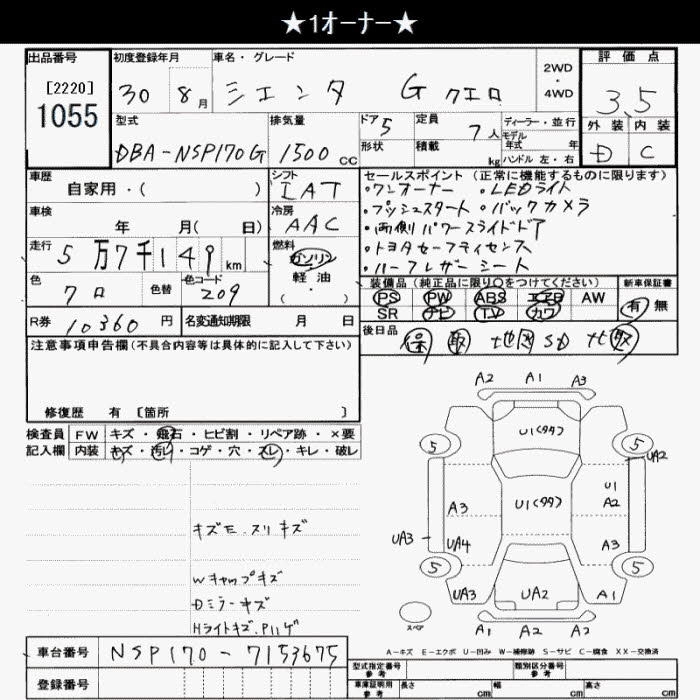 ★1オーナー★
出品番号 初度登録年月 車名・グレード 2WD・4WD 評価点
[2220] 1055
30 8月 シエンタ G クエロ 3.5
型式 排気量 ドア 5 定員 7人 ディーラー・並行 外装 内装
モデル年式 年
DBA-NSP170G 1500cc 形状 積載 kg ハンドル 左・右 D C
車歴 シフト セールスポイント(正常に機能するものに限ります)
自家用・( ) IAT ・ワンオーナー ・LEDライト
車検 冷房 ・プッシュスタート ・バックカメラ
年 月( 日) AAC ・両側パワースライドドア
走行 燃料 ・トヨタセーフティセンス
5万7千149km ガソリン ・ハーフレザーシート
軽油・( )
色 色替 色コード 装備品(純正品に限り○をつけてください) 新車保証書
クロ 209 PS PW ABS エアB AW 有 無
SR ナビ TV カワ
R券 10360円 名変通知期限 月 日 後日品 保 取 地図SD
注意事項申告欄(不具合内容等は具体的に記入して下さい)
修復歴 有 [箇所 ]
検査員 FW キズ・飛石・ヒビ割・リペア跡・×要
記入欄 内装 キズ・汚れ・コゲ・穴・スレ・キレ・破レ
キズモ.スリキズ
Wキャップキズ
Dミラーキズ
HライトキズPハゲ
A2 A1 A3
U1(タタ)
5 5
UA2
U1
A3 U1(タタ) A2
UA3 UA4 A3
5 5
UA3 UA2 A1
スペア A1 A2 A2
A-キズ E-エクボ U-凹み W-補修跡 S-サビ C-腐食 XX-交換済
車台番号 NSP170-7153675
型式指定番号 参考 類別区分番号 参考
登録番号 車庫証明用 参考 長さ cm 幅 cm 高さ cm